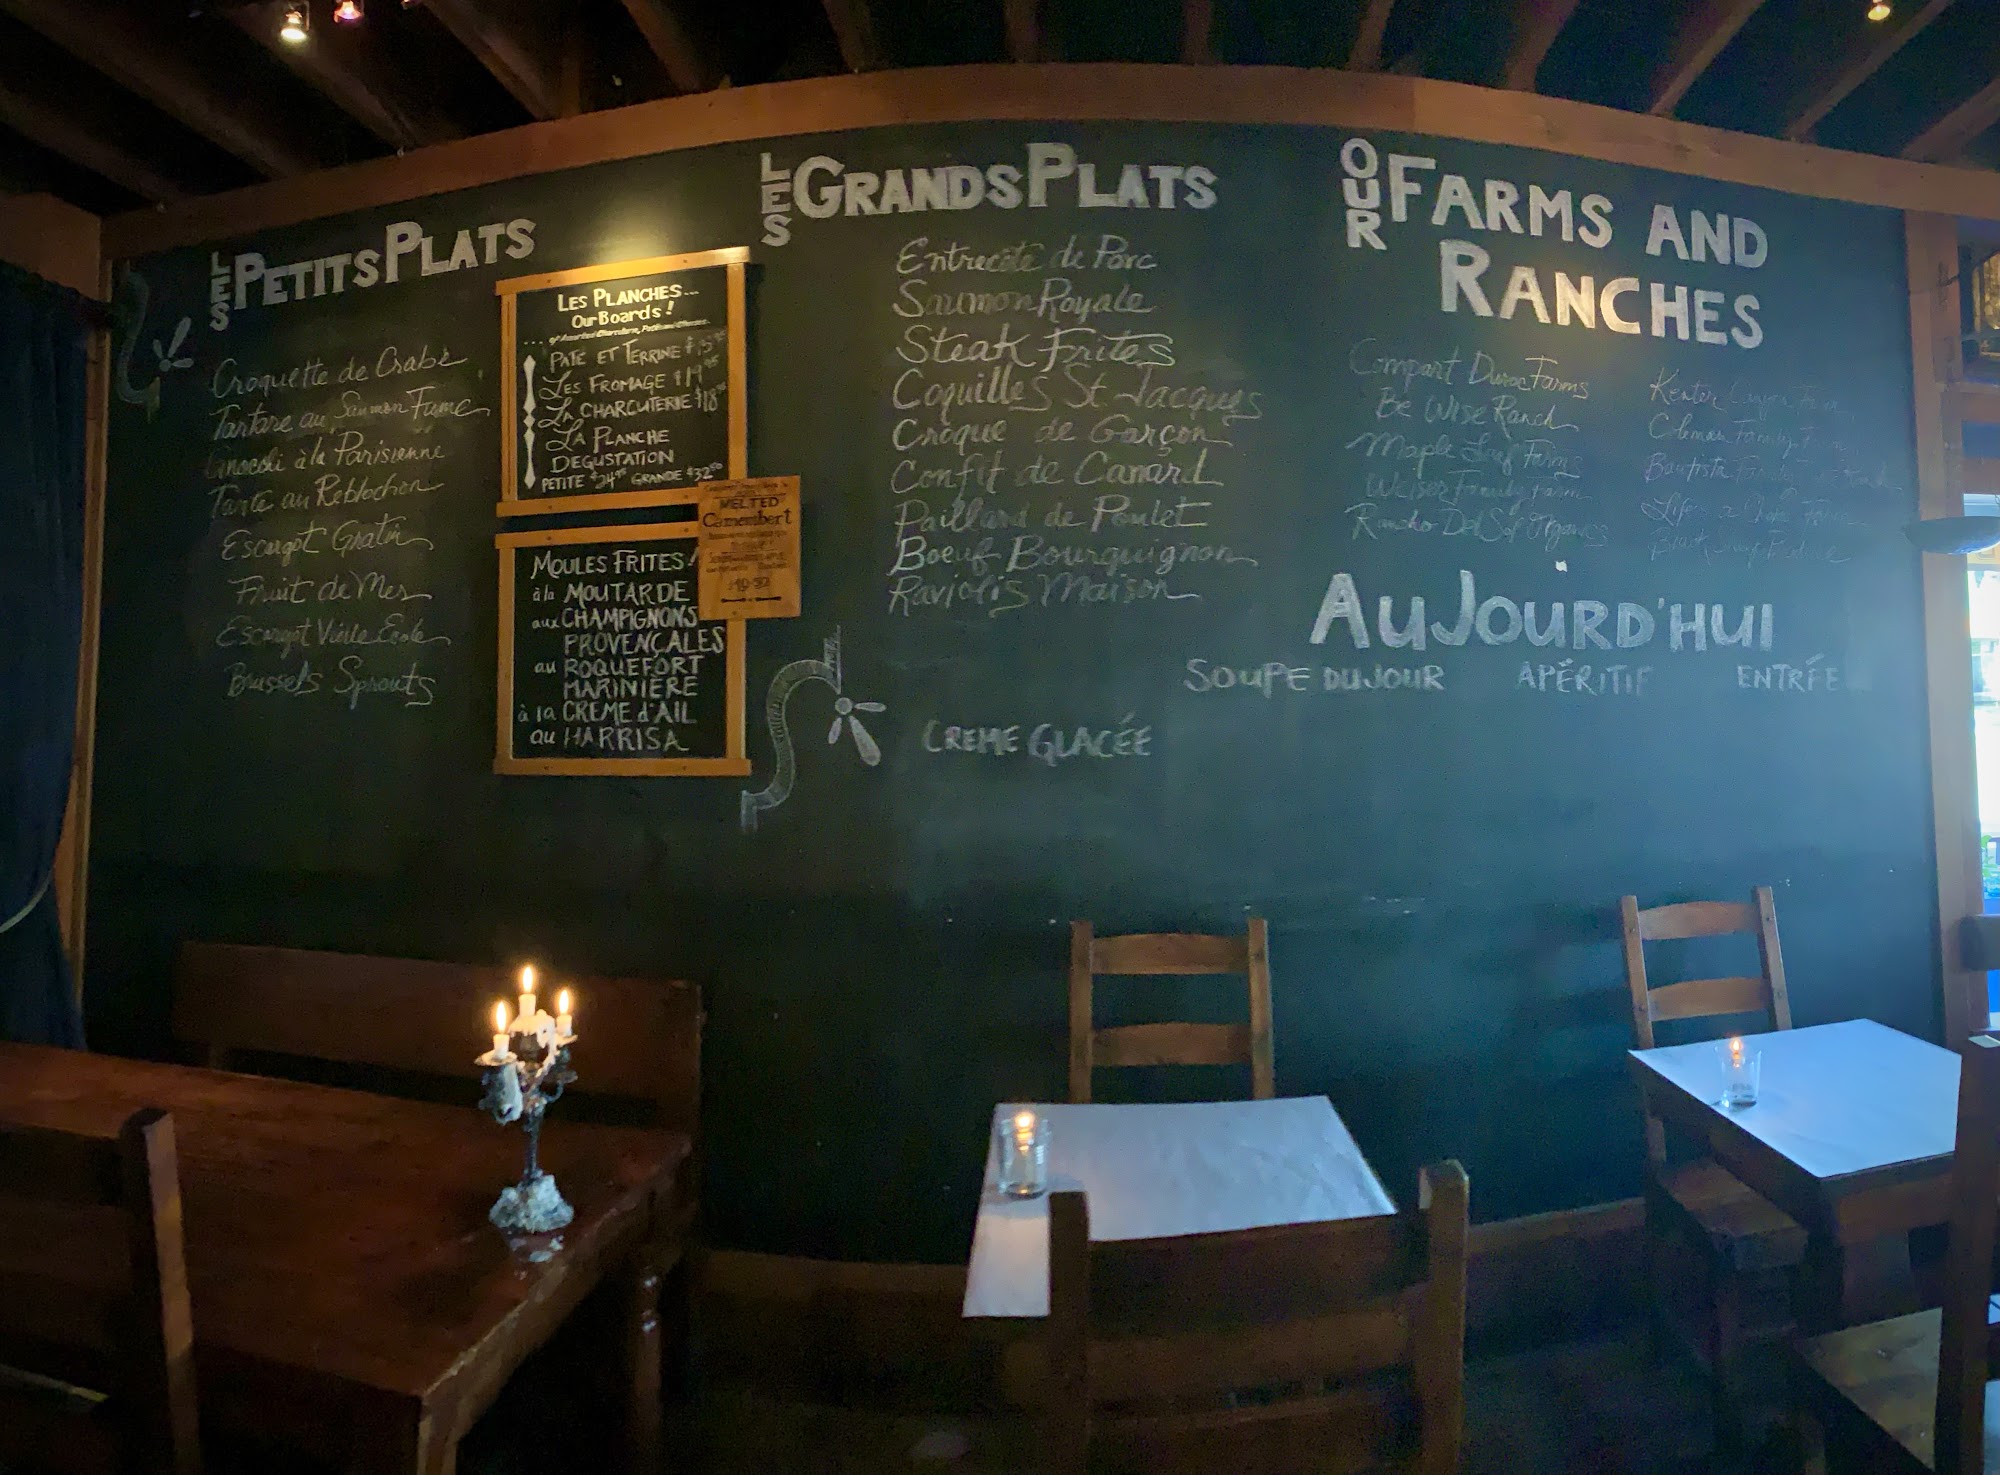 LES PETITS PLATS
Croquette de Crabe
Tartare au Saumon Fumé
Gnocchi à la Parisienne
Tarte au Reblochon
Escargot Gratin
Fruit de Mer
Escargot Vieille École
Brussels Sprouts
LES PLANCHES...
Our Boards!
PATE ET TERRINE $15.95
LES FROMAGE $19.95
LA CHARCUTERIE $18.95
LA PLANCHE
DEGUSTATION
PETITE $24.95 GRANDE $32.50
MELTED
Camembert
MOULES FRITES!
à la MOUTARDE
aux CHAMPIGNONS
PROVENÇALES
au ROQUEFORT
MARINIÈRE
à la CREME d'AIL
au HARRISA
LES GRANDS PLATS
Entrecote de Porc
Saumon Royale
Steak Frites
Coquilles St Jacques
Croque de Garçon
Confit de Canard
Paillard de Poulet
Boeuf Bourguignon
Raviolis Maison
CREME GLACÉE
OUR FARMS AND
RANCHES
Compart Duroc Farms
Be Wise Ranch
Maple Leaf Farms
Weiser Family Farm
Rancho Del Sol Organics
Kenter Canyon Farm
Coleman Family Farm
Bautista Family
AUJOURD'HUI
SOUPE DU JOUR APÉRITIF ENTRÉE